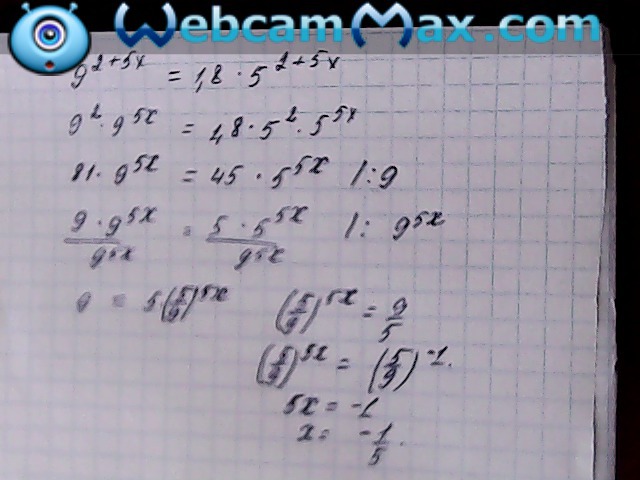 WebcamMax.com
9^{2+5x} = 1,8 · 5^{2+5x}
9^2 · 9^{5x} = 1,8 · 5^2 · 5^{5x}
81 · 9^{5x} = 45 · 5^{5x} /:9
\frac{9 · 9^{5x}}{9^{5x}} = \frac{5 · 5^{5x}}{9^{5x}} /: 9^{5x}
9 = 5(\frac{5}{9})^{5x}
(\frac{5}{9})^{5x} = \frac{9}{5}
(\frac{5}{9})^{5x} = (\frac{5}{9})^{-1}.
5x = -1
x = -\frac{1}{5}.